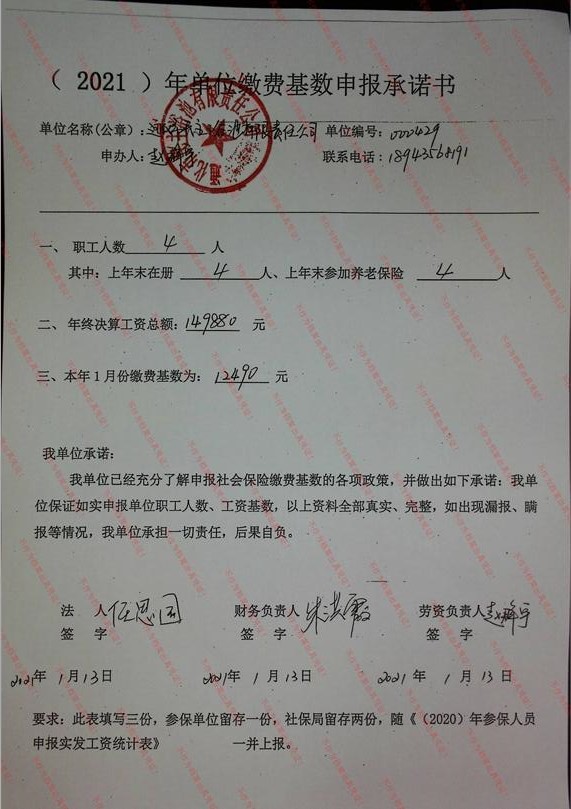 （ 2021 ）年单位缴费基数申报承诺书
单位名称(公章)：有限责任公司 单位编号：000429
申办人：赵 联系电话：18943568191
一、 职工人数 4 人
其中：上年末在册 4 人、上年末参加养老保险 4 人
二、年终决算工资总额：149880 元
三、本年1月份缴费基数为：12490 元
我单位承诺：
我单位已经充分了解申报社会保险缴费基数的各项政策，并做出如下承诺：我单
位保证如实申报单位职工人数、工资基数，以上资料全部真实、完整，如出现漏报、瞒
报等情况，我单位承担一切责任，后果自负。
法 人 任思国 财务负责人 朱洪霞 劳资负责人 赵
签 字 签 字 签 字
2021年 1月13日 2021年 1月13日 2021年 1月13日
要求：此表填写三份，参保单位留存一份，社保局留存两份，随《（2020）年参保人员
申报实发工资统计表》 一并上报。